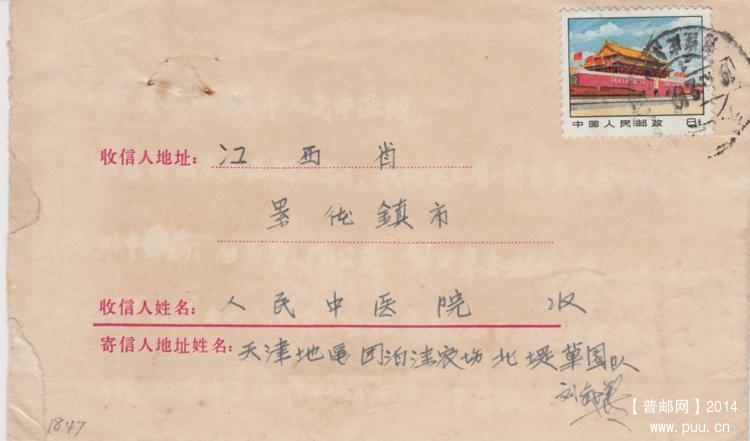 中国人民邮政 8分
收信人地址: 江西省
景德鎮市
收信人姓名: 人民中医院 收
寄信人地址姓名: 天津地区团泊洼农场北堤菓园队
1847
【普邮网】2014
www.puu.cn